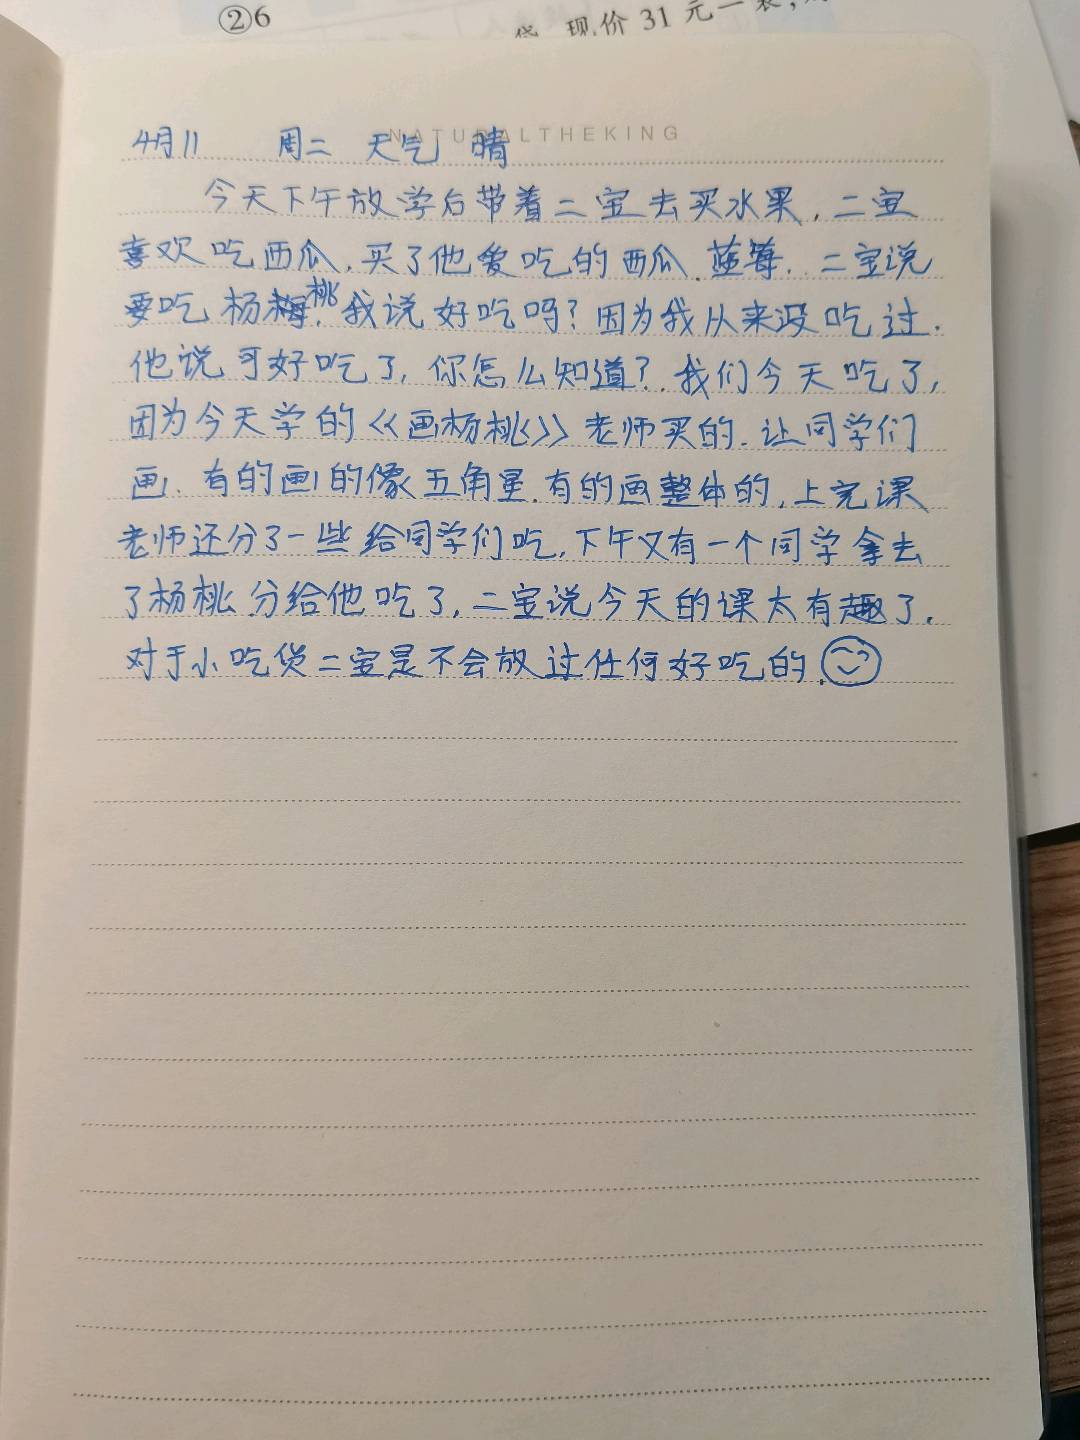 ②6
袋,现价31元一袋,
NATURALTHEKING
4月11 周二 天气 晴
今天下午放学后带着二宝去买水果,二宝
喜欢吃西瓜,买了他爱吃的西瓜.蓝莓.二宝说
要吃杨桃,我说好吃吗?因为我从来没吃过.
他说可好吃了,你怎么知道?.我们今天吃了,
因为今天学的《画杨桃》老师买的.让同学们
画.有的画的像五角星.有的画整体的,上完课
老师还分了一些给同学们吃,下午又有一个同学拿去
了杨桃分给他吃了,二宝说今天的课太有趣了.
对于小吃货二宝是不会放过任何好吃的.